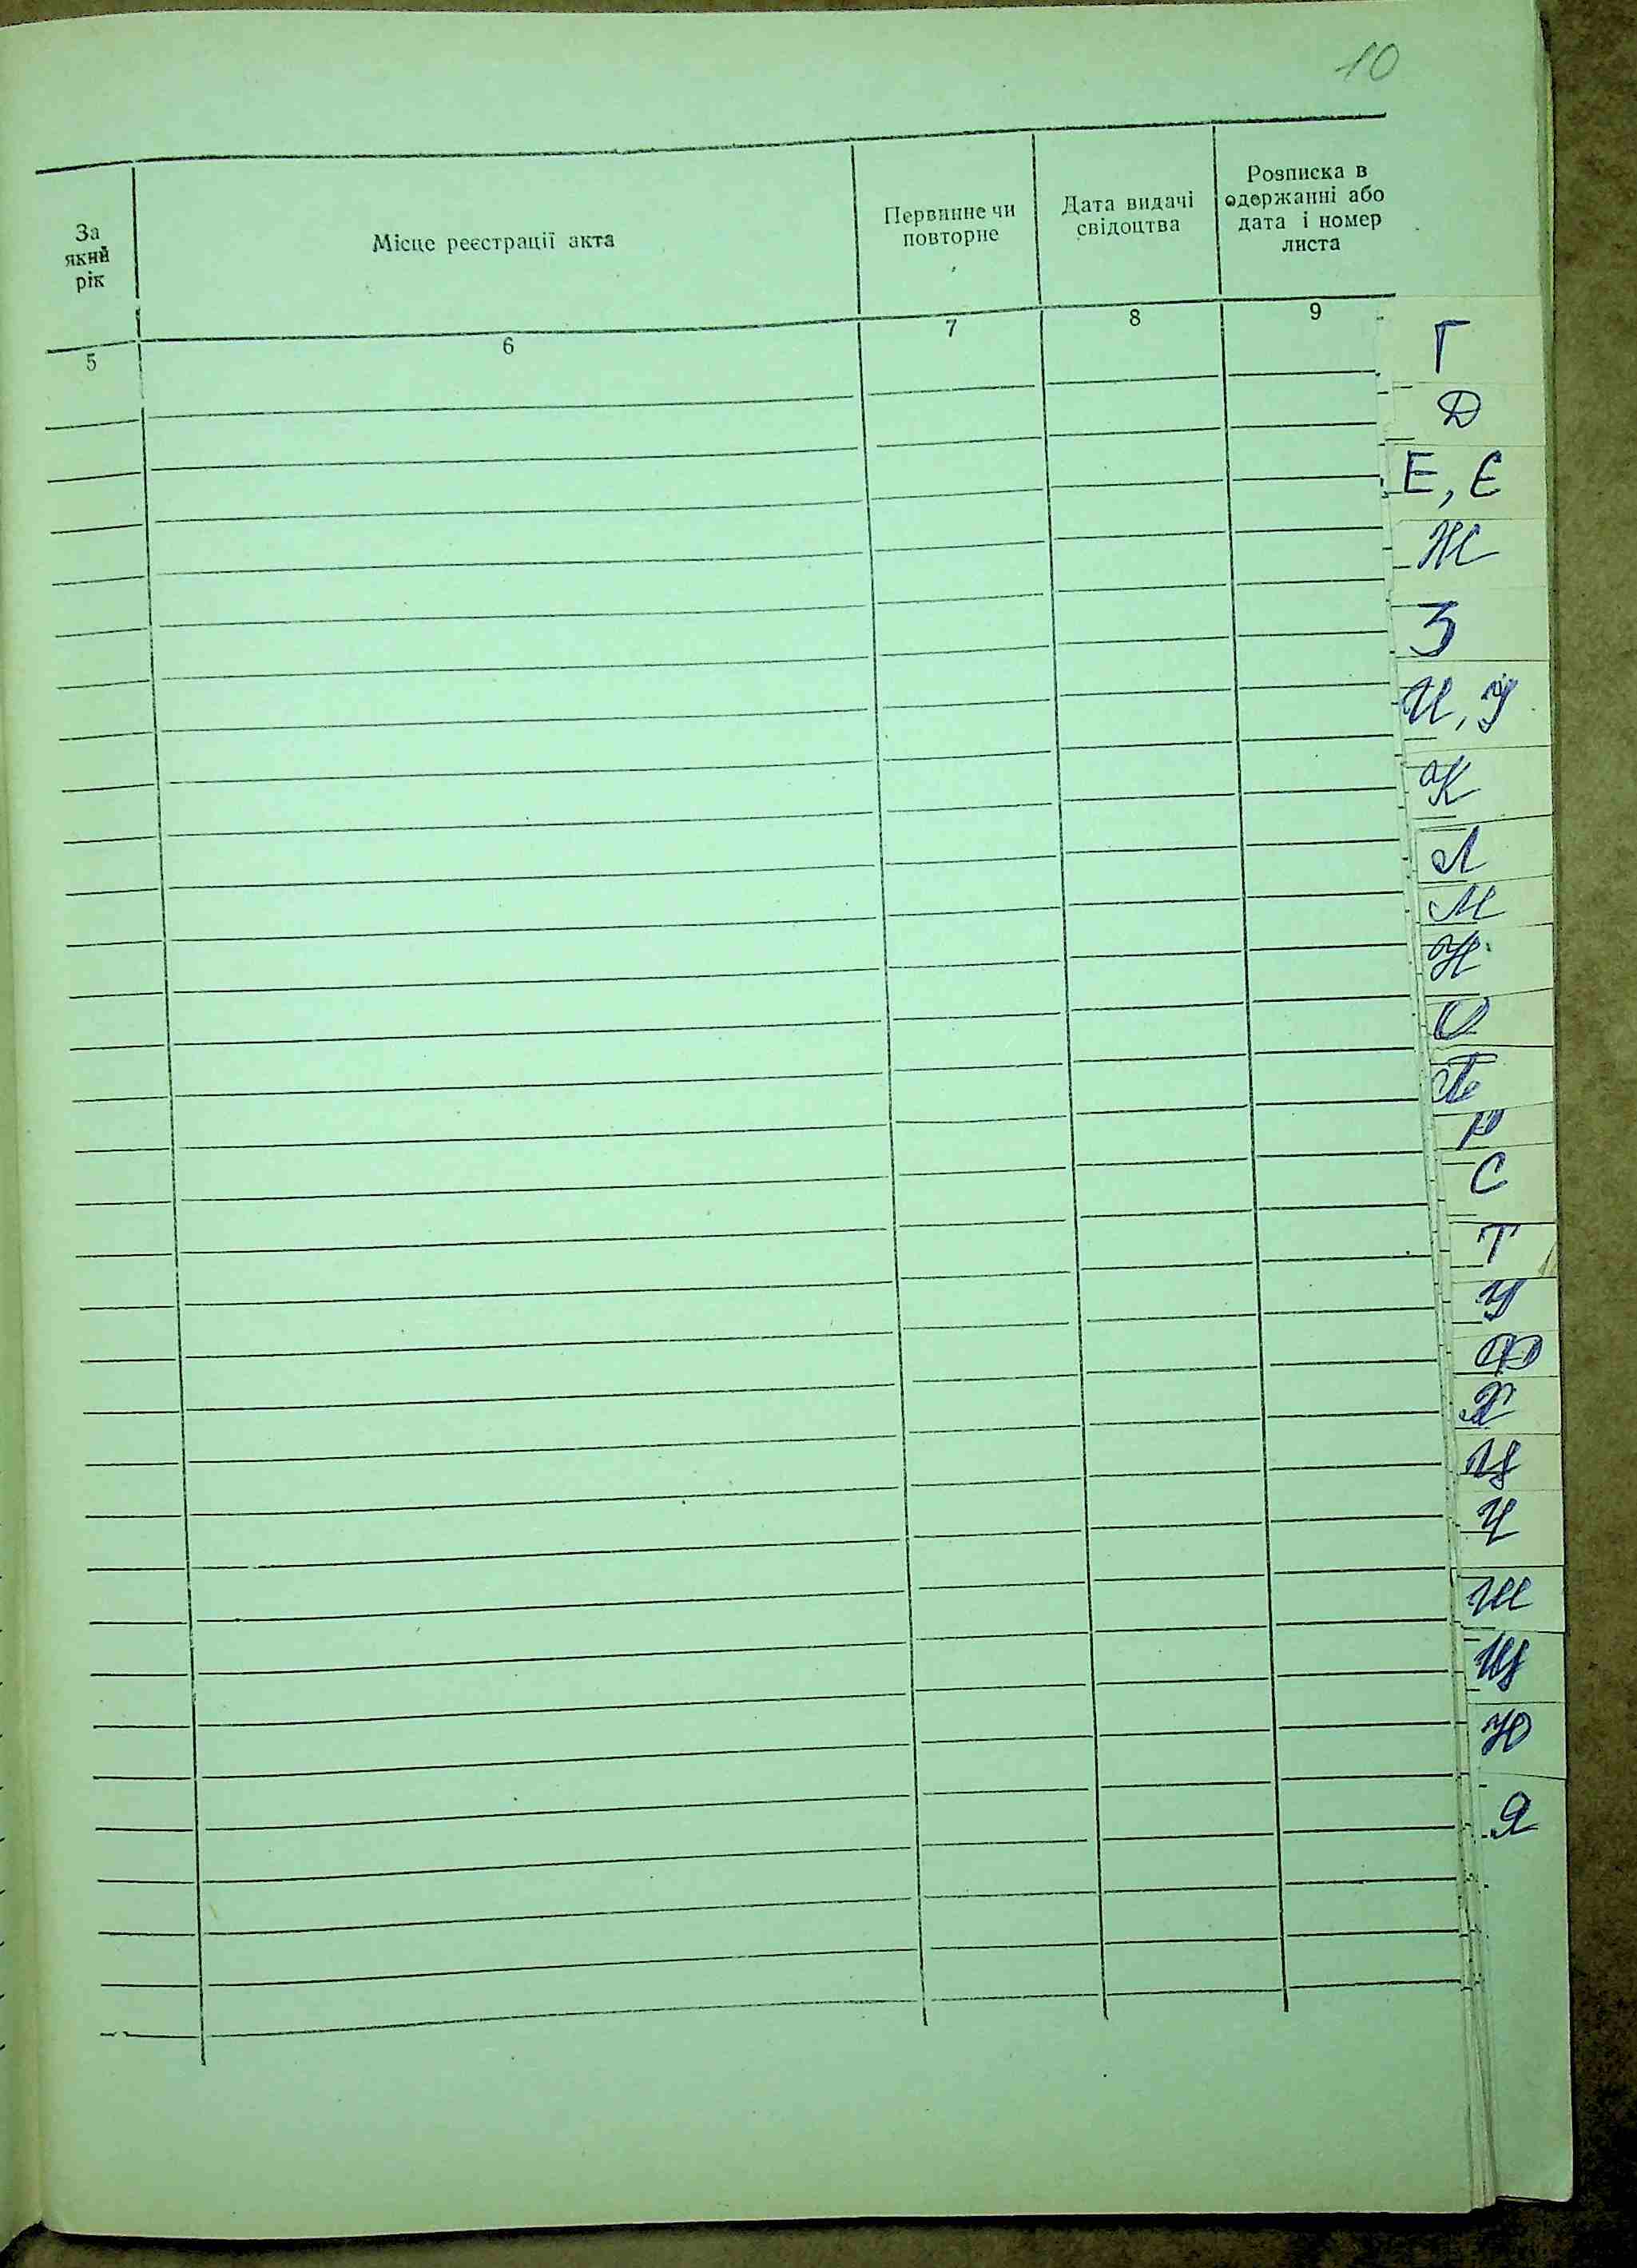 10
За
який
рік
Місце реєстрації акта
Первинне чи
повторне
Дата видачі
свідоцтва
Розписка в
одержанні або
дата і номер
листа
5 6 7 8 9
Г
Д
Е, Є
Ж
З
И, У
К
Л
М
Н
О
П
Р
С
Т
У
Ф
Х
Ц
Ч
Ш
Щ
Ю
Я